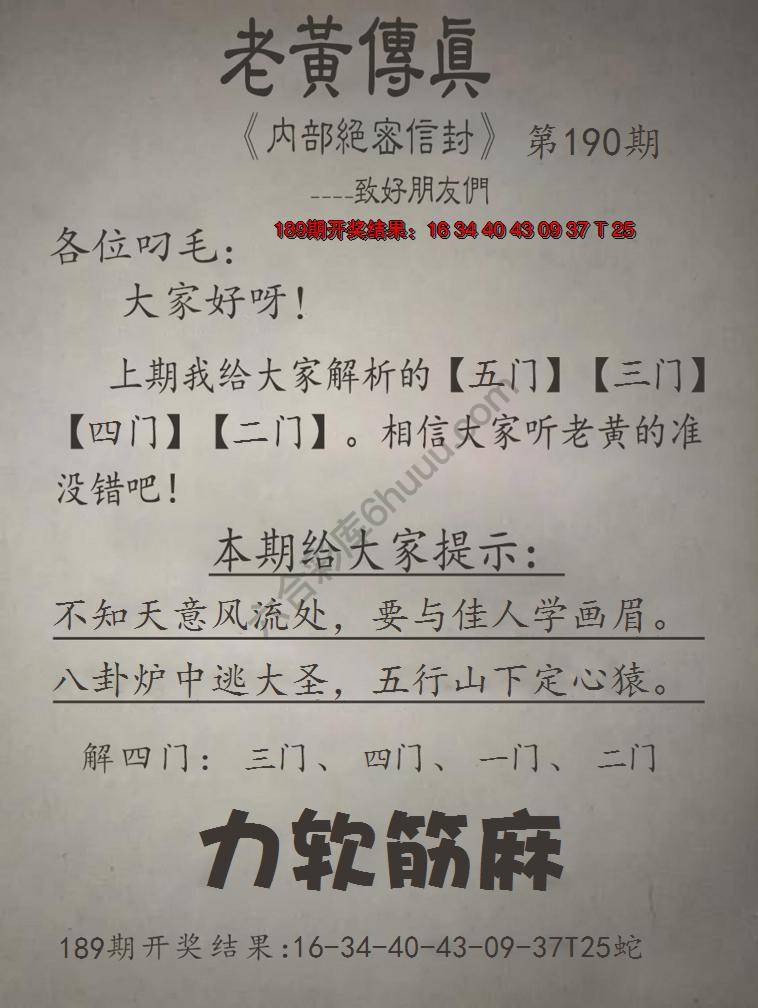 老黃傳眞
《内部絕密信封》 第190期
----致好朋友們
189期开奖结果：16 34 40 43 09 37 T 25
各位叼毛：
大家好呀！
上期我给大家解析的【五门】【三门】
【四门】【二门】。相信大家听老黄的准
没错吧！
本期给大家提示：
不知天意风流处，要与佳人学画眉。
八卦炉中逃大圣，五行山下定心猿。
解四门：三门、四门、一门、二门
力软筋麻
189期开奖结果:16-34-40-43-09-37T25蛇
六合彩库6huuu.com